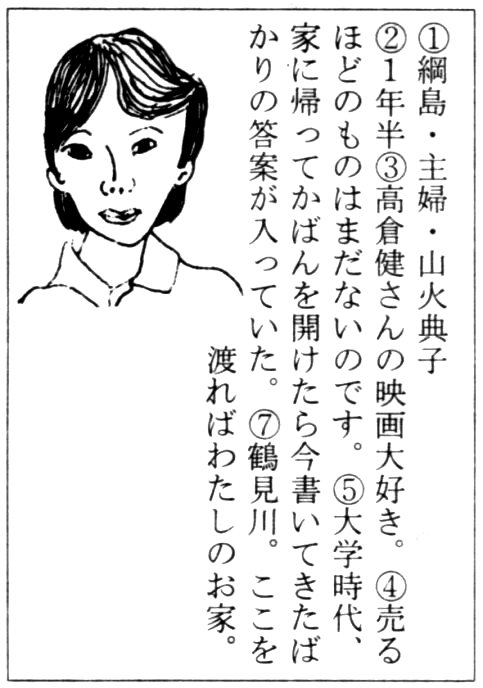 ①綱島・主婦・山火典子
②１年半③高倉健さんの映画大好き。④売る
ほどのものはまだないのです。⑤大学時代、
家に帰ってかばんを開けたら今書いてきたば
かりの答案が入っていた。⑦鶴見川。ここを
渡ればわたしのお家。